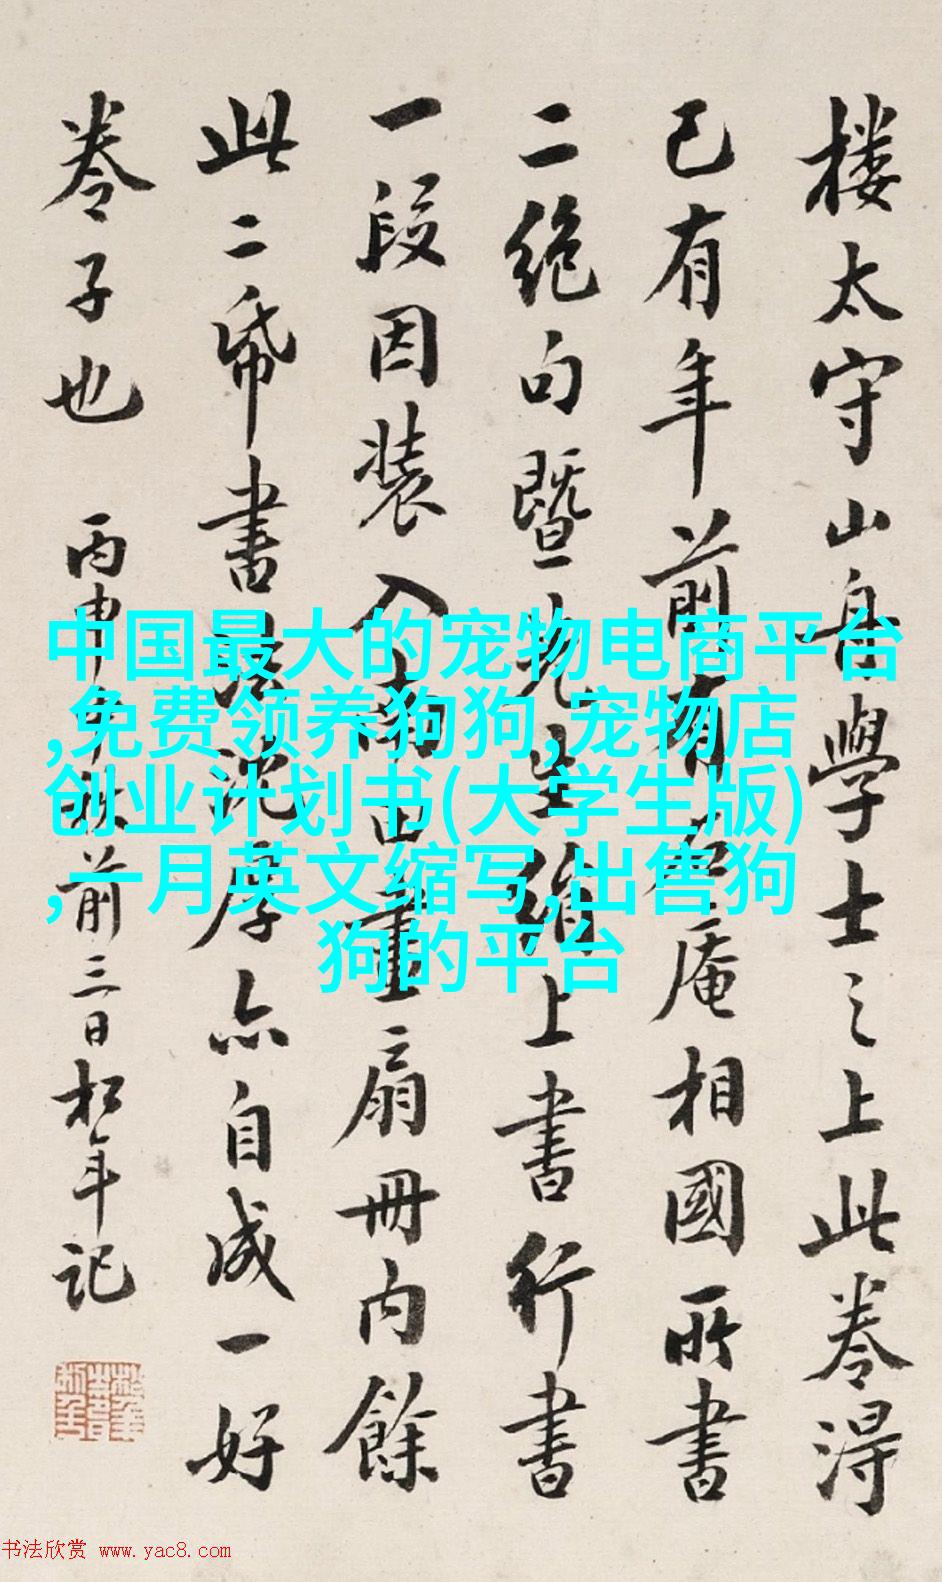 楼太守山舟學士之上此卷得
已有年前有石庵相國所書
二絕句暨先生上書行書
一段因裝入南田畫扇冊内餘
此二帋書渾厚亦自成一好
卷子也
丙申年秋前三日松年記
中国最大的宠物电商平台
,免费领养狗狗,宠物店
创业计划书(大学生版)
,一月英文缩写,出售狗
狗的平台
书法欣赏 www.yac8.com